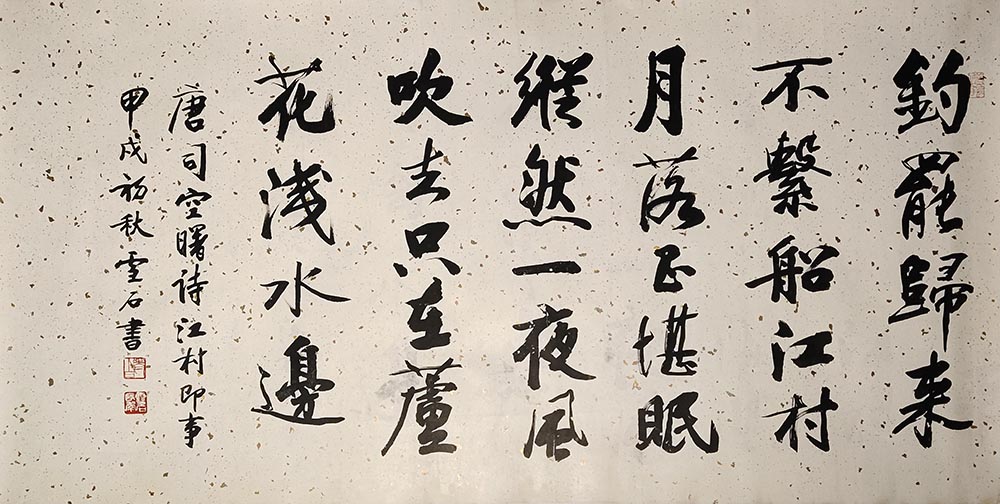 釣罷歸来
不繫船江村
月落正堪眠
縱然一夜風
吹去只在蘆
花淺水邊
唐司空曙诗江村即事
甲戌初秋雲石書